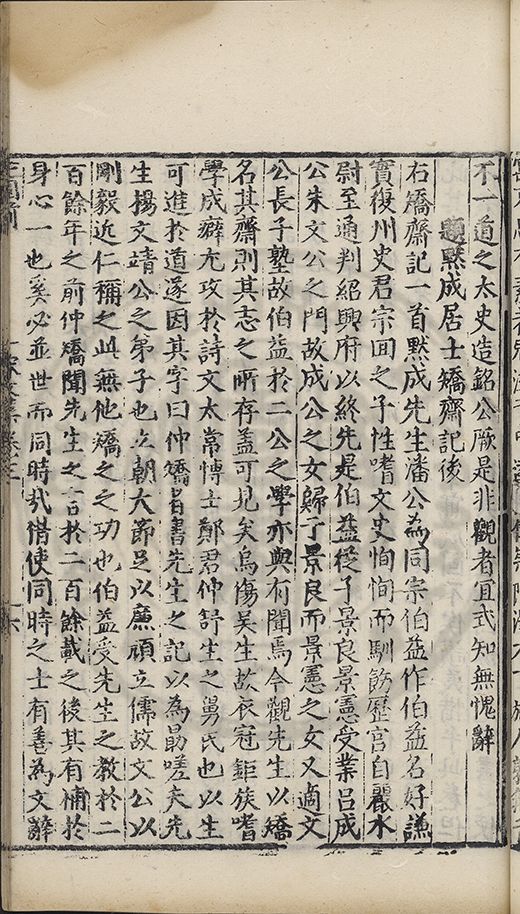 不一道之太史造銘公厥是非觀者宜式知無愧辭
題黙成居士矯齋記後
右矯齋記一首黙成先生潘公為同宗伯益作伯益名好謙
實復州史君宗回之子性嗜文史恂恂而馴飭歷官自麗水
尉至通判紹興府以終先是伯益從子景良景憲受業呂成
公朱文公之門故成公之女歸于景良而景憲之女又適文
公長子塾故伯益於二公之學亦與有聞焉今觀先生以矯
名其齋則其志之所存盖可見矣烏傷吴生故衣冠鉅族嗜
學成癖尤攻於詩文太常博士鄭君仲舒生之舅氏也以生
可進於道遂因其字曰仲矯者書先生之記以為勗嗟夫先
生楊文靖公之弟子也立朝大節足以廉頑立儒故文公以
剛毅近仁稱之此無他矯之之功也伯益受先生之教於二
百餘年之前仲矯聞先生之言於二百餘載之後其有補於
身心一也奚必並世而同時㢤借使同時之士有善為文辭